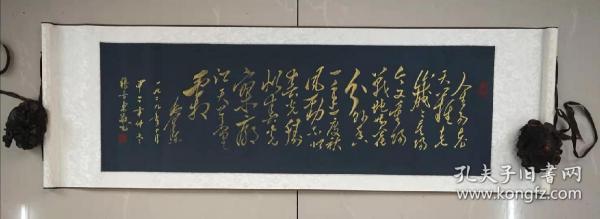 人生易老
天难老
岁岁重阳
今又重阳
战地黄花
分外香
一年一度秋
风劲不似
春光胜
似春光
寥廓
江天万里
霜
毛泽东
一九二九年十月
孔夫子旧书网
kongfz.com